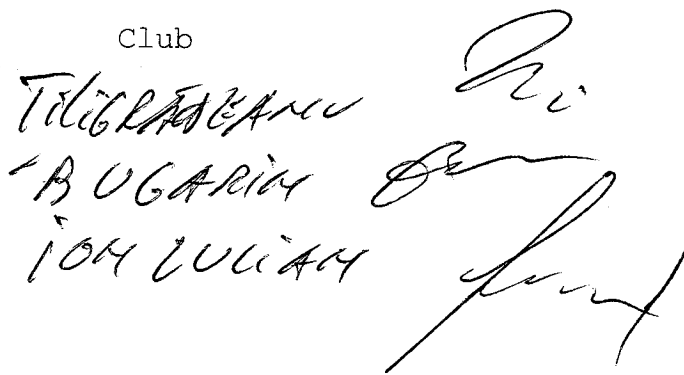 Club
TiLiGRĂDEANU
BUGARiN
iON IULiAN